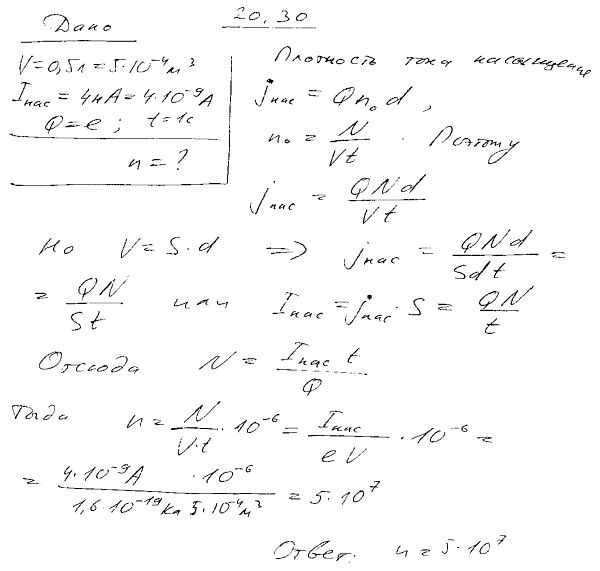 20.30
Дано
V=0,5л=5·10⁻⁴м³
Iнас=4нА=4·10⁻⁹А
Q=e; t=1c
n=?
Плотность тока насыщения
jнас = Qn₀d,
n₀ = N/Vt. Поэтому
jнас = QNd/Vt
Но V=S·d => jнас = QNd/Sdt =
= QN/St или Iнас=jнас·S = QN/t
Отсюда N = Iнас t/Q
Тогда n = N/V·t ·10⁻⁶ = Iнас/eV ·10⁻⁶ =
= 4·10⁻⁹А ·10⁻⁶/1,6·10⁻¹⁹Кл 5·10⁻⁴м³ = 5·10⁷
Ответ: n=5·10⁷